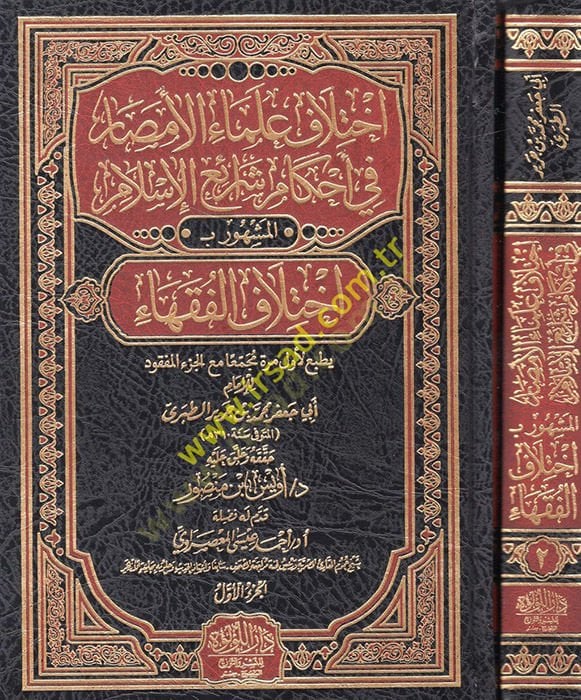 اختلاف علماء الأمصار
في أحكام شرائع الإسلام
المشهور ب
اختلاف الفقهاء
يطبع لأول مرة مجتمعا مع الجزء المفقود
للإمام
أبي جعفر محمد بن جرير الطبري
(المتوفى سنة ٣١٠هـ)
حققه وعلق عليه
د/أويس ابن منصور
قدم له فضيلة
أ.د/أحمد عيسى المعصراوي
الجزء الأول
دار اللؤلؤة
للنشر والتوزيع
المنصورة - مصر
www.irsad.com.tr
أبي جعفر محمد بن جرير
الطبري
اختلاف علماء الأمصار
في أحكام شرائع الإسلام
المشهور ب
اختلاف
الفقهاء
٢
دار اللؤلؤة
للنشر والتوزيع
المنصورة - مصر